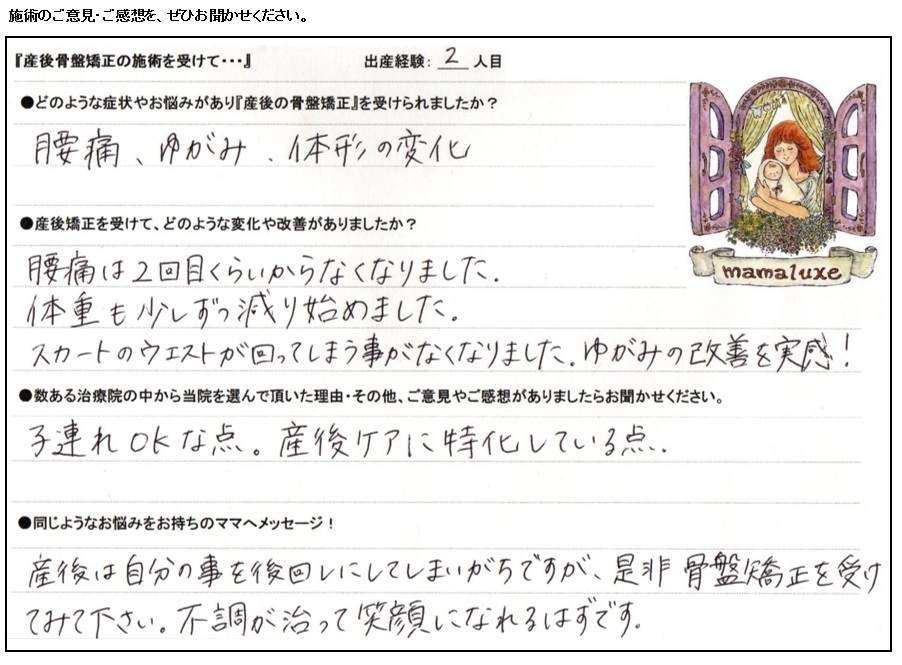 施術のご意見・ご感想を、ぜひお聞かせください。
『産後骨盤矯正の施術を受けて・・・』 出産経験: 2 人目
●どのような症状やお悩みがあり『産後の骨盤矯正』を受けられましたか？
腰痛、ゆがみ、体形の変化
●産後矯正を受けて、どのような変化や改善がありましたか？
腰痛は2回目くらいからなくなりました.
体重も少しずつ減り始めました。
スカートのウエストが回ってしまう事がなくなりました.ゆがみの改善を実感！
mamaluxe
●数ある治療院の中から当院を選んで頂いた理由・その他、ご意見やご感想がありましたらお聞かせください。
子連れOKな点。産後ケアに特化している点.
●同じようなお悩みをお持ちのママへメッセージ！
産後は自分の事を後回しにしてしまいがちですが、是非骨盤矯正を受け
てみて下さい。不調が治って笑顔になれるはずです.